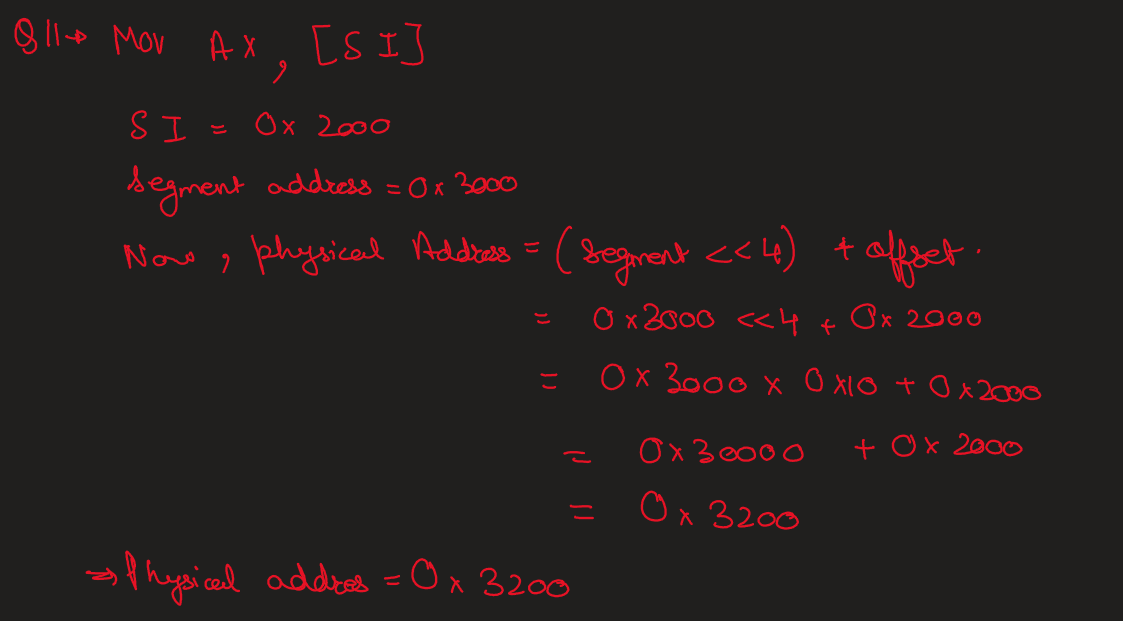 Q11→ Mov AX, [SI]
SI = 0x 2000
Segment address = 0x 3000
Now, physical Address = (Segment <<4) + offset.
= 0x3000 <<4 + 0x 2000
= 0x 3000 x 0x10 + 0x2000
= 0x30000 + 0x 2000
= 0x 3200
⇒ Physical addres = 0x 3200